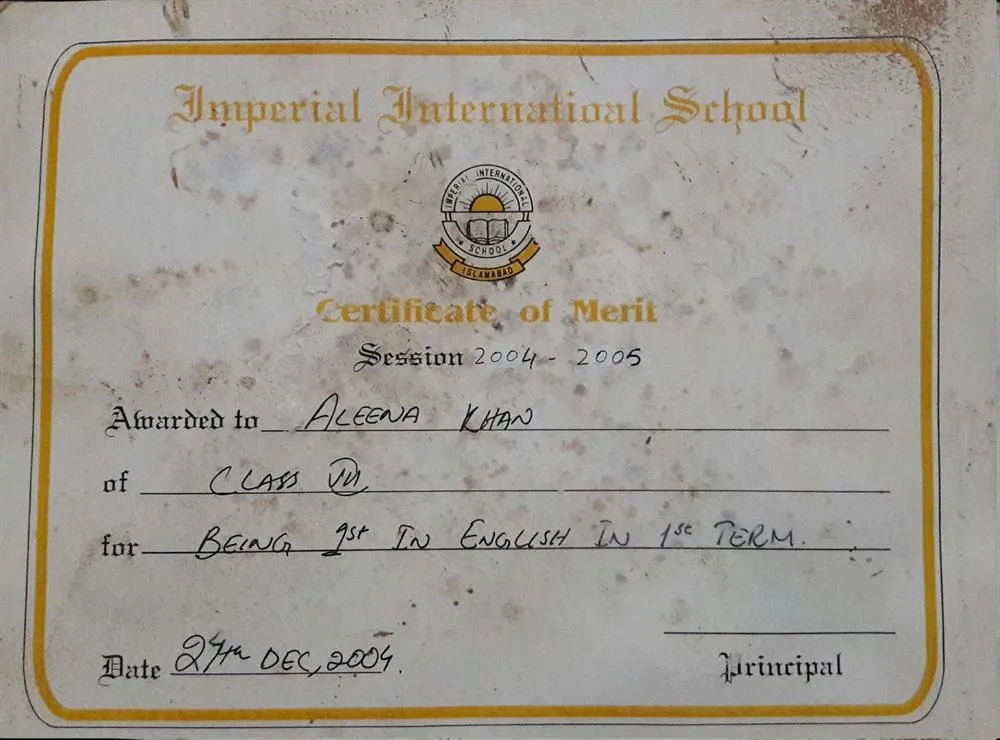 Imperial Internatioal School
IMPERIAL INTERNATIONAL
SCHOOL
ISLAMABAD
Certificate of Merit
Session 2004 - 2005
Awarded to ALEENA KHAN
of CLASS VII
for BEING 1st IN ENGLISH IN 1st TERM.
Date 24th DEC, 2004.
Principal